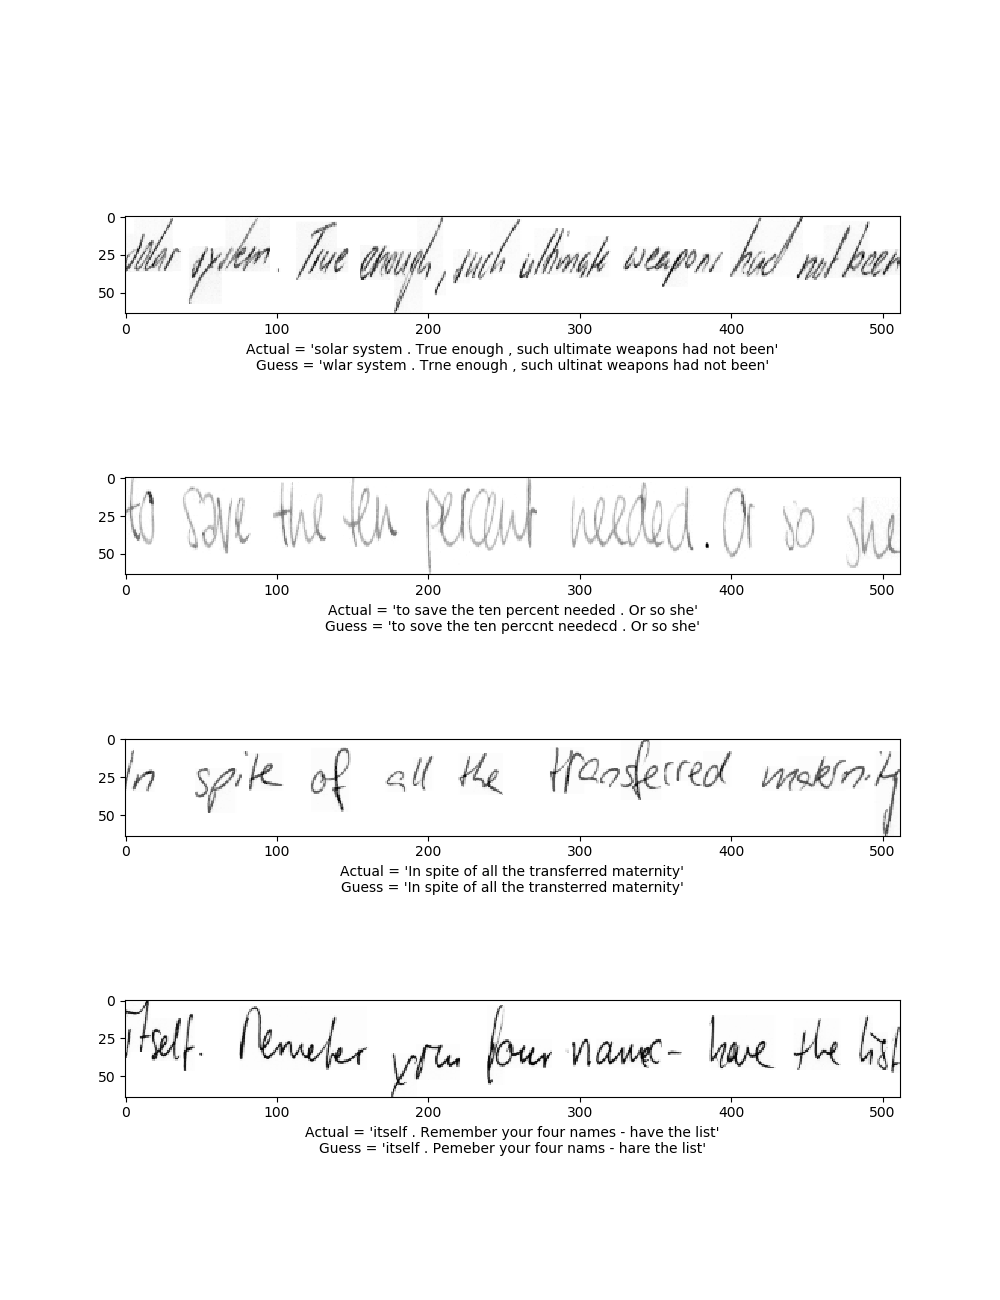 0
25
50
solar system. True enough, such ultimate weapons had not been
0 100 200 300 400 500
Actual = 'solar system . True enough , such ultimate weapons had not been'
Guess = 'wlar system . Trne enough , such ultinat weapons had not been'
0
25
50
to save the ten percent needed. Or so she
0 100 200 300 400 500
Actual = 'to save the ten percent needed . Or so she'
Guess = 'to sove the ten perccnt needecd . Or so she'
0
25
50
In spite of all the transferred maternity
0 100 200 300 400 500
Actual = 'In spite of all the transferred maternity'
Guess = 'In spite of all the transterred maternity'
0
25
50
itself. Remeber your four names - have the list
0 100 200 300 400 500
Actual = 'itself . Remember your four names - have the list'
Guess = 'itself . Pemeber your four nams - hare the list'